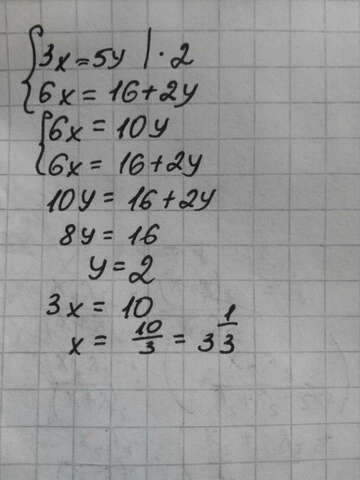 { 3x = 5y | · 2
6x = 16 + 2y
{ 6x = 10y
6x = 16 + 2y
10y = 16 + 2y
8y = 16
y = 2
3x = 10
x = 10/3 = 3 1/3